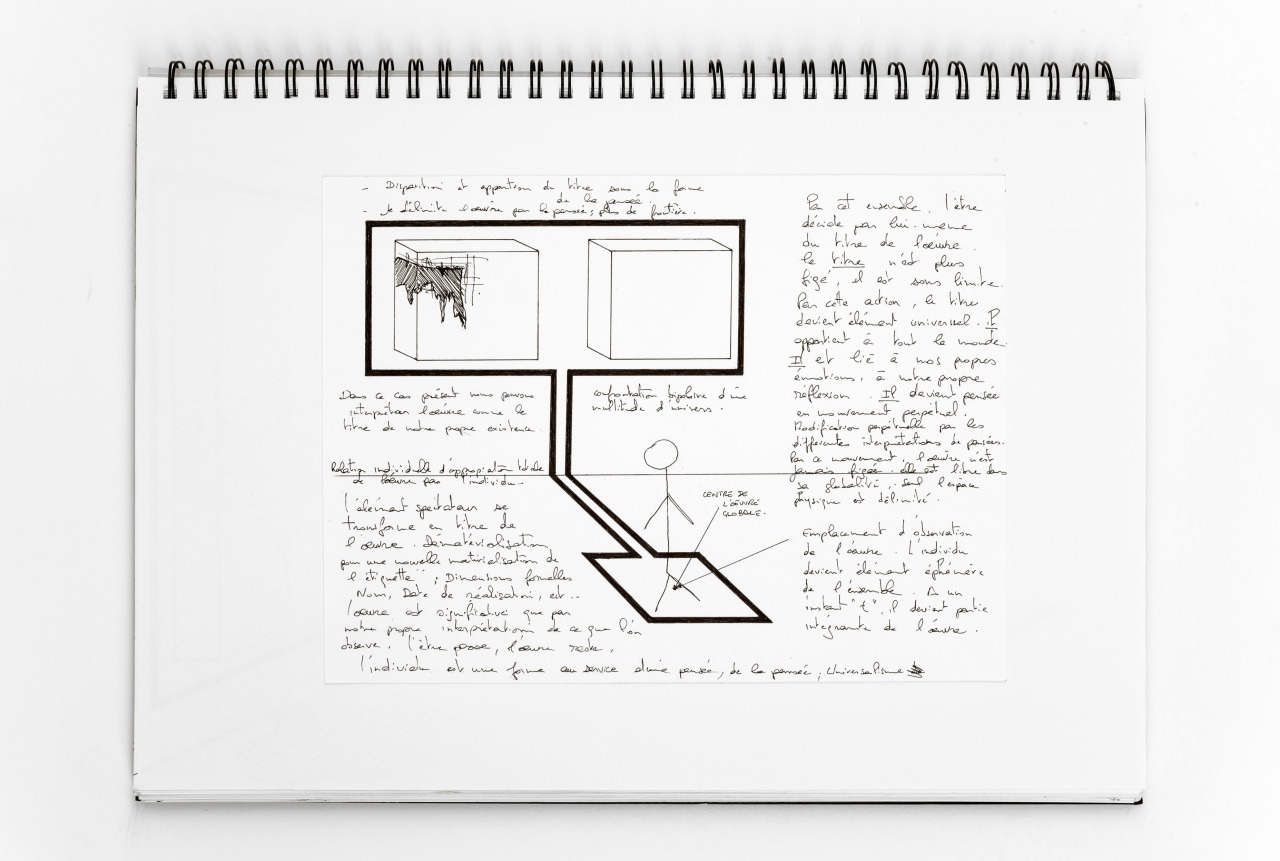 - Disparition et apparition du titre sous la forme
de la pensée
- Je délimite l'œuvre par la pensée; plus de frontière.
Par cet ensemble, l'être
décide par lui-même
du titre de l'œuvre.
le titre n'est plus
figé, il est sous limite.
Par cette action, le titre
devient élément universel. Il
appartient à tout le monde.
Il est lié à nos propres
émotions, à notre propre
réflexion. Il devient pensée
en mouvement perpétuel.
Modification perpétuelle par les
différentes interprétations de pensées.
Par ce mouvement, l'œuvre n'est
jamais figée. elle est libre dans
sa globalité, seul l'espace
physique est délimité.
Dans ce cas présent nous pouvons
interpréter l'œuvre comme le
titre de notre propre existence.
confrontation bipolaire d'une
multitude d'univers.
Relation individuelle d'appropriation totale
de l'œuvre par l'individu.
CENTRE DE
L'ŒUVRE
GLOBALE.
l'élément spectateur se
transforme en titre de
l'œuvre. Dématérialisation
pour une nouvelle matérialisation de
"l'étiquette"; Dimensions formelles
Nom, Date de réalisation, est..
l'œuvre est significative que par
notre propre interprétation de ce que l'on
observe. l'être passe, l'œuvre reste.
Emplacement d'observation
de l'œuvre. L'individu
devient élément éphémère
de l'ensemble. A un
instant "t", il devient partie
intégrante de l'œuvre.
l'individu est une forme au service d'une pensée, de la pensée; Universalisme